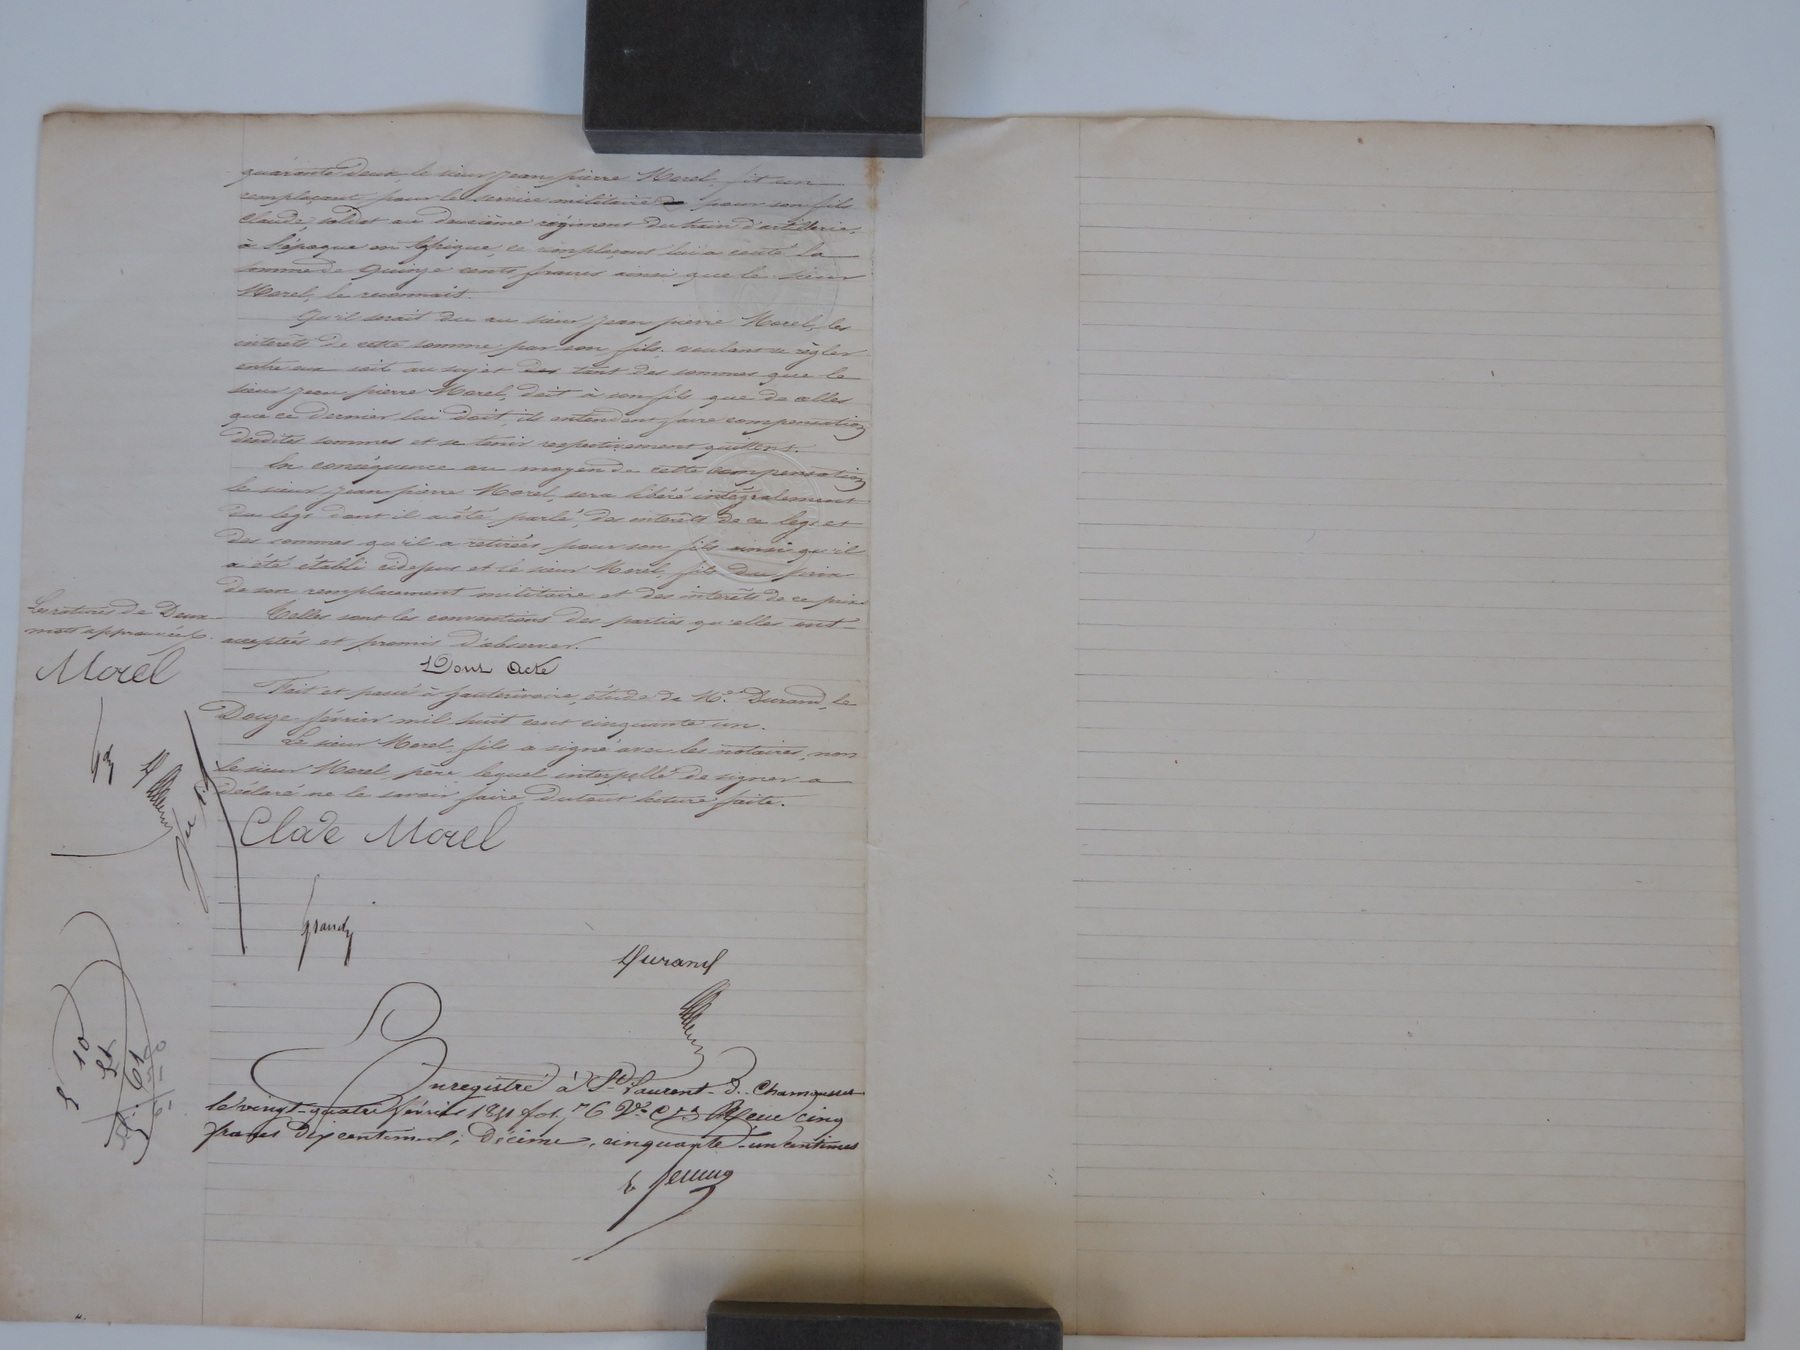 quarante deux, le sieur Jean pierre Morel, fit un
remplaçant pour le service militaire pour son fils
Claude, soldat au deuxième régiment du train d'artillerie,
à l'époque en Afrique, ce remplaçant lui a couté la
somme de quinze cents francs ainsi que le sieur
Morel, le reconnait.
Qu'il serait du au sieur Jean pierre Morel, les
interêts de cette somme par son fils. voulant se règler
entre eux soit au sujet des tant des sommes que le
sieur Jean pierre Morel, doit à son fils que de celles
que ce dernier lui doit, ils entendent faire compensation
desdites sommes et se tenir respectivement quittes.
En conséquence au moyen de cette compensation
le sieur Jean pierre Morel, sera libéré intégralement
du legs dont il a été parlé, des interêts de ce legs et
des sommes qu'il a retirées pour son fils ainsi qu'il
a été établi cidessus et le sieur Morel, fils du prix
de son remplacement militaire et des interêts de ce prix.
Telles sont les conventions des parties qu'elles ont
acceptées et promis d'observer.
Les ratures de Deux
mots approuvées.
Morel
Dont Acte
Fait et passé à hauterivoire, étude de Me. Durand, le
Douze février mil huit cent cinquante un.
Le sieur Morel, fils a signé avec les notaires, non
le sieur Morel, père lequel interpellé de signer a
déclaré ne le savoir faire, du tout lecture faite.
Clade Morel
Grandy
Durand
Enregistré à St Laurent-d. Chamousset
le vingt-quatre février 1851 fol. 76 Vo Reçu cinq
francs Dix centimes, Décime, cinquante-un centimes
5 10
51
5 61